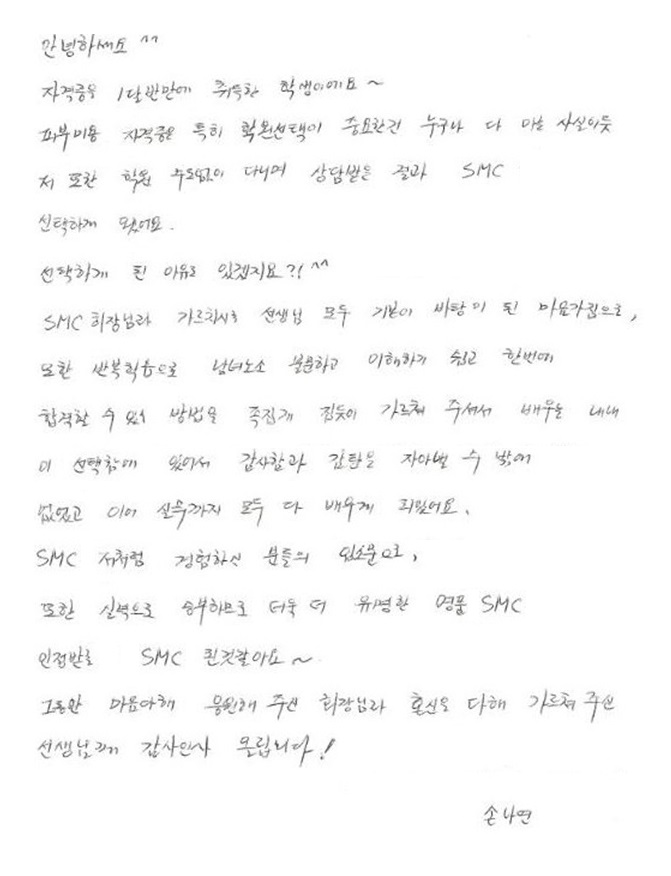 안녕하세요 ^^
자격증을 1달반만에 취득한 학생이에요~
피부미용 자격증은 특히 학원선택이 중요한건 누구나 다 아는 사실이듯
저 또한 학원 수도없이 다니며 상담받은 결과 SMC
선택하게 되었어요.
선택하게 된 이유도 있겠지요?! ^^
SMC 회장님과 가르치시는 선생님 모두 기본이 바탕이 된 마음가짐으로,
또한 반복학습으로 남녀노소 불문하고 이해하기 쉽고 한번에
합격할 수 있는 방법을 족집게 집듯이 가르쳐 주셔서 배우는 내내
이 선택함에 있어서 감사함과 감탄을 자아낼 수 밖에
없었고 이어 실무까지 모두 다 배우게 되었어요.
SMC 저처럼 경험하신 분들의 입소문으로,
또한 실력으로 승부하므로 더욱 더 유명한 명품 SMC
인정받는 SMC 된것같아요~
그동안 마음다해 응원해 주신 회장님과 혼신을 다해 가르쳐 주신
선생님께 감사인사 올립니다!
손나연